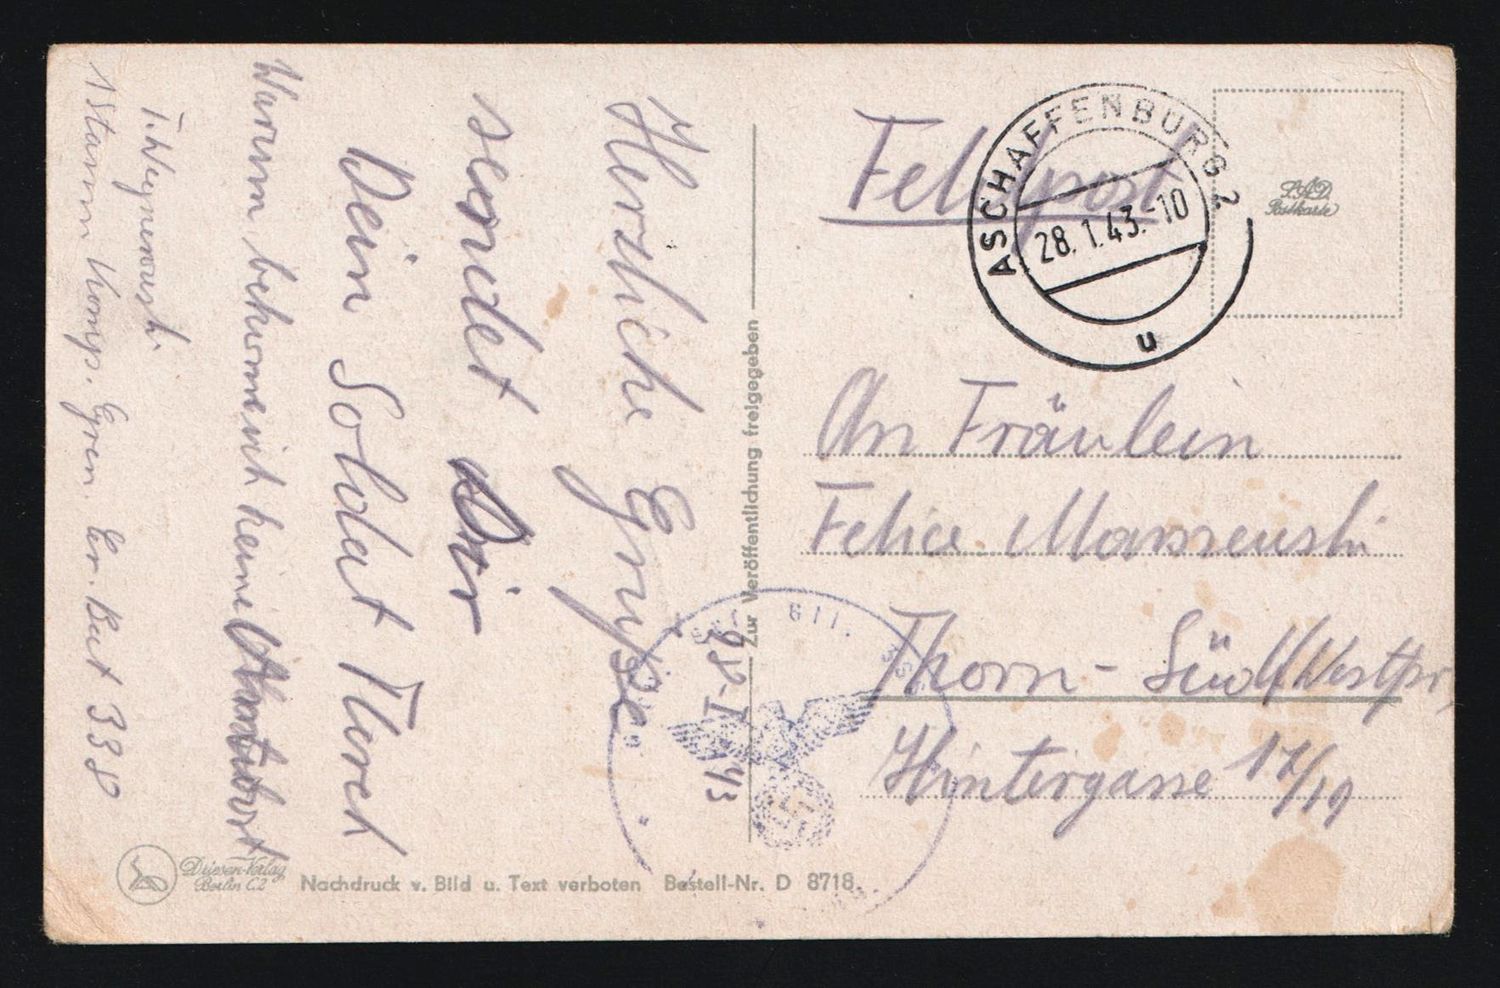 Feldpost
ASCHAFFENBURG 2
28.1.43.-10
u
L.A.D.
Postkarte
An Fräulein
Felice
Thorn - Süd/Westpr.
Hintergasse 17/19
Herzliche Grüße
sendet Dir
Dein Soldat
Warum bekomme ich keine Antwort
1 Stamm Komp. Gren. Er. Bat 338
Zur Veröffentlichung freigegeben
Driesen-Verlag
Berlin C2
Nachdruck v. Bild u. Text verboten Bestell-Nr. D 8718